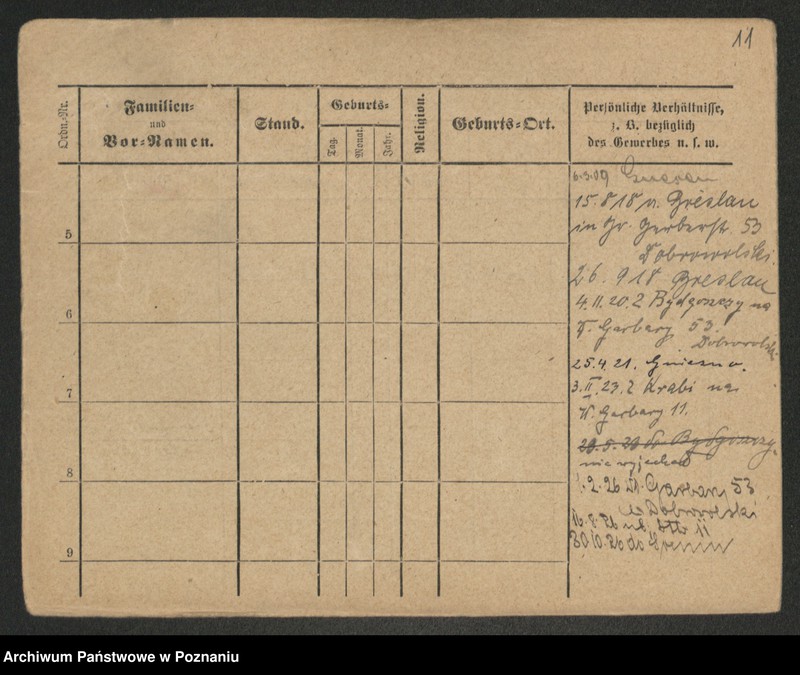 11
Ordn.-Nr.
Familien-
und
Vor-Namen.
Stand.
Geburts-
Tag.
Monat.
Jahr.
Religion.
Geburts-Ort.
Persönliche Verhältnisse,
z. B. bezüglich
des Gewerbes u. s. w.
5
6
7
8
9
6.3.09
15.8 18 n. Breslau
in Gr. Gerberstr. 53
Dobrowolski.
26. 9 18 Breslau
4.11.20. z Bydgoszczy na
W. Garbary 53.
Dobrowolski
25.4.21. Gniezno.
3.II.23. z na
W. Garbary 11.
do Bydgoszczy.
nie wyjechał
2.26 W. Garbary 53
Dobrowolski
16.8.26 11
30/10.26 do
Archiwum Państwowe w Poznaniu